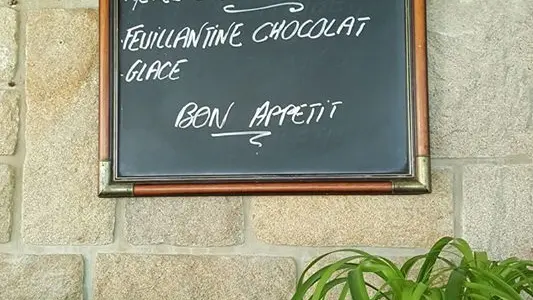 FEUILLANTINE CHOCOLAT
GLACE
BON APPETIT